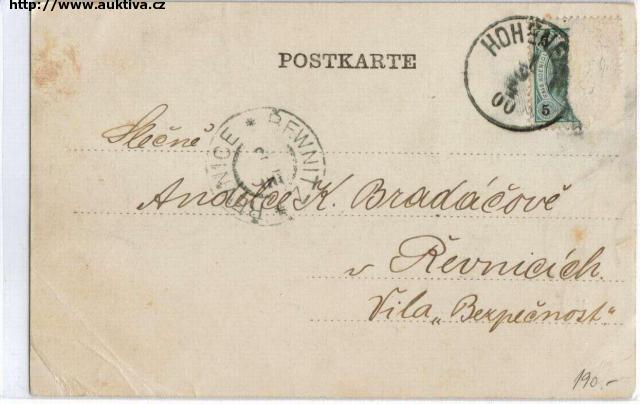 http://www.auktiva.cz
POSTKARTE
HOHEN
00
5
REWNITZ * ŘEVNICE *
Slečně
Andulce K. Bradáčově
v Řevnicích
Vila „Bezpečnost"
190.-